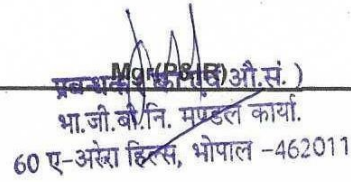 Mgr(P&IR)
प्रबन्धक (का. एवं औ.सं. )
भा.जी.बी.नि. मण्डल कार्या.
60 ए-अरेरा हिल्स, भोपाल -462011